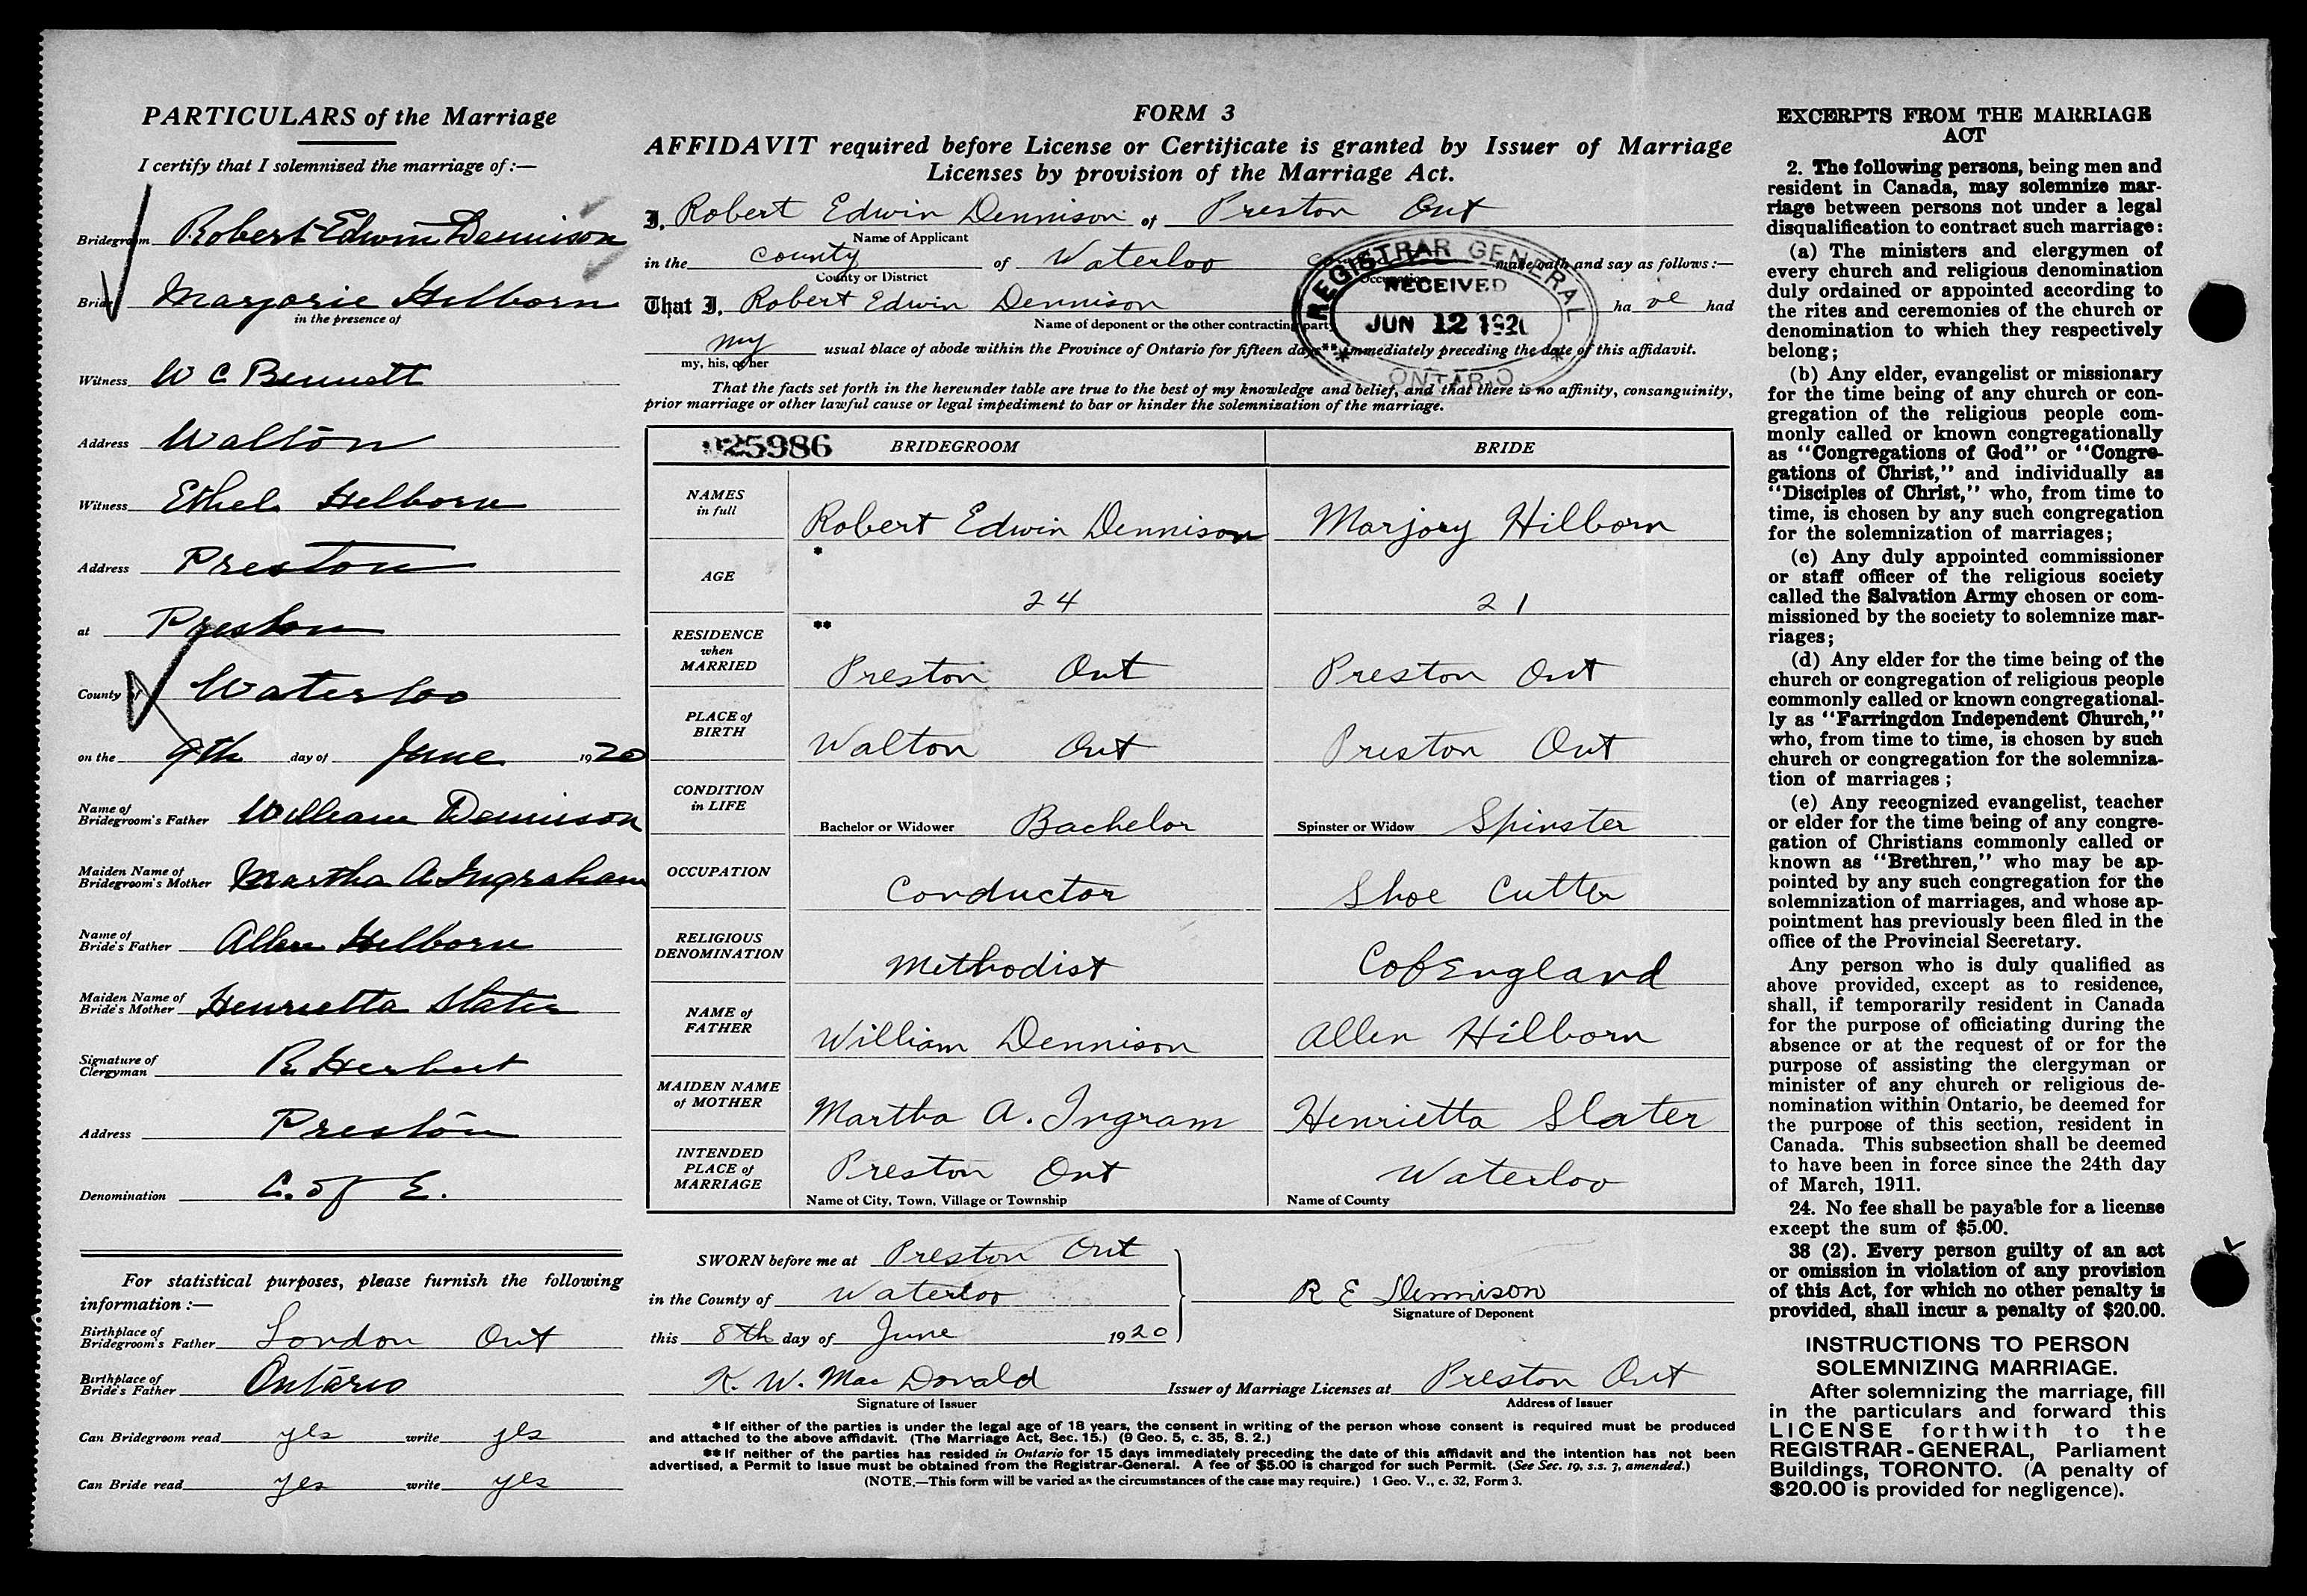 PARTICULARS of the Marriage
I certify that I solemnized the marriage of:—
Bridegroom Robert Edwin Dennison
Bride Marjorie Hilborn
in the presence of
Witness W C Bennett
Address Walton
Witness Ethel Hilborn
Address Preston
at Preston
County of Waterloo
on the 9th day of June 1920
Name of
Bridegroom's Father William Dennison
Maiden Name of
Bridegroom's Mother Martha A Ingraham
Name of
Bride's Father Allen Hilborn
Maiden Name of
Bride's Mother Henrietta Slater
Signature of
Clergyman R. Herbert
Address Preston
Denomination C. of E.
For statistical purposes, please furnish the following
information:—
Birthplace of
Bridegroom's Father London Ont
Birthplace of
Bride's Father Ontario
Can Bridegroom read yes write yes
Can Bride read yes write yes
FORM 3
AFFIDAVIT required before License or Certificate is granted by Issuer of Marriage
Licenses by provision of the Marriage Act.
I, Robert Edwin Dennison of Preston Ont
Name of Applicant
in the County of Waterloo make oath and say as follows:—
County or District Occupation
That I, Robert Edwin Dennison ha ve had
Name of deponent or the other contracting party
my usual place of abode within the Province of Ontario for fifteen days** immediately preceding the date of this affidavit.
my, his, or her
REGISTRAR GENERAL
RECEIVED
JUN 12 1920
ONTARIO
That the facts set forth in the hereunder table are true to the best of my knowledge and belief, and that there is no affinity, consanguinity,
prior marriage or other lawful cause or legal impediment to bar or hinder the solemnization of the marriage.
025986 BRIDEGROOM BRIDE
NAMES
in full Robert Edwin Dennison Marjory Hilborn
*
AGE 24 21
**
RESIDENCE
when
MARRIED Preston Ont Preston Ont
PLACE of
BIRTH Walton Ont Preston Ont
CONDITION
in LIFE Bachelor or Widower Bachelor Spinster or Widow Spinster
OCCUPATION Conductor Shoe Cutter
RELIGIOUS
DENOMINATION Methodist C of England
NAME of
FATHER William Dennison Allen Hilborn
MAIDEN NAME
of MOTHER Martha A. Ingram Henrietta Slater
INTENDED
PLACE of
MARRIAGE Preston Ont Waterloo
Name of City, Town, Village or Township Name of County
SWORN before me at Preston Ont
in the County of Waterloo R E Dennison
Signature of Deponent
this 8th day of June 1920
K. W. MacDonald Issuer of Marriage Licenses at Preston Ont
Signature of Issuer Address of Issuer
* If either of the parties is under the legal age of 18 years, the consent in writing of the person whose consent is required must be produced
and attached to the above affidavit. (The Marriage Act, Sec. 15.) (9 Geo. 5, c. 35, S. 2.)
** If neither of the parties has resided in Ontario for 15 days immediately preceding the date of this affidavit and the intention has not been
advertised, a Permit to Issue must be obtained from the Registrar-General. A fee of $5.00 is charged for such Permit. (See Sec. 19, s.s. 3, amended.)
(NOTE.—This form will be varied as the circumstances of the case may require.) 1 Geo. V., c. 32, Form 3.
EXCERPTS FROM THE MARRIAGE
ACT
2. The following persons, being men and
resident in Canada, may solemnize mar-
riage between persons not under a legal
disqualification to contract such marriage:
(a) The ministers and clergymen of
every church and religious denomination
duly ordained or appointed according to
the rites and ceremonies of the church or
denomination to which they respectively
belong;
(b) Any elder, evangelist or missionary
for the time being of any church or con-
gregation of the religious people com-
monly called or known congregationally
as "Congregations of God" or "Congre-
gations of Christ," and individually as
"Disciples of Christ," who, from time to
time, is chosen by any such congregation
for the solemnization of marriages;
(c) Any duly appointed commissioner
or staff officer of the religious society
called the Salvation Army chosen or com-
missioned by the society to solemnize mar-
riages;
(d) Any elder for the time being of the
church or congregation of religious people
commonly called or known congregational-
ly as "Farringdon Independent Church,"
who, from time to time, is chosen by such
church or congregation for the solemniza-
tion of marriages;
(e) Any recognized evangelist, teacher
or elder for the time being of any congre-
gation of Christians commonly called or
known as "Brethren," who may be ap-
pointed by any such congregation for the
solemnization of marriages, and whose ap-
pointment has previously been filed in the
office of the Provincial Secretary.
Any person who is duly qualified as
above provided, except as to residence,
shall, if temporarily resident in Canada
for the purpose of officiating during the
absence or at the request of or for the
purpose of assisting the clergyman or
minister of any church or religious de-
nomination within Ontario, be deemed for
the purpose of this section, resident in
Canada. This subsection shall be deemed
to have been in force since the 24th day
of March, 1911.
24. No fee shall be payable for a license
except the sum of $5.00.
38 (2). Every person guilty of an act
or omission in violation of any provision
of this Act, for which no other penalty is
provided, shall incur a penalty of $20.00.
INSTRUCTIONS TO PERSON
SOLEMNIZING MARRIAGE.
After solemnizing the marriage, fill
in the particulars and forward this
LICENSE forthwith to the
REGISTRAR-GENERAL, Parliament
Buildings, TORONTO. (A penalty of
$20.00 is provided for negligence).